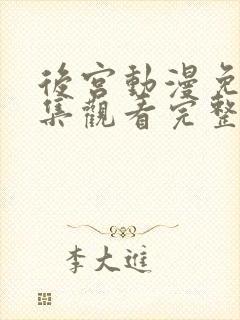 後宮動漫免
集觀看完整
李大進